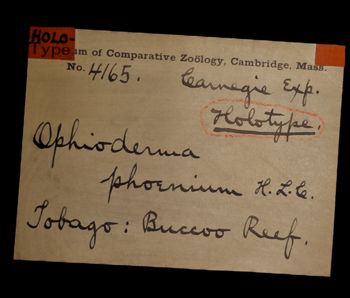 HOLO-
Type
um of Comparative Zoölogy, Cambridge, Mass.
No. 4165.
Carnegie Exp.
Holotype.
Ophioderma
phoenium H.L.C.
Tobago: Buccoo Reef.